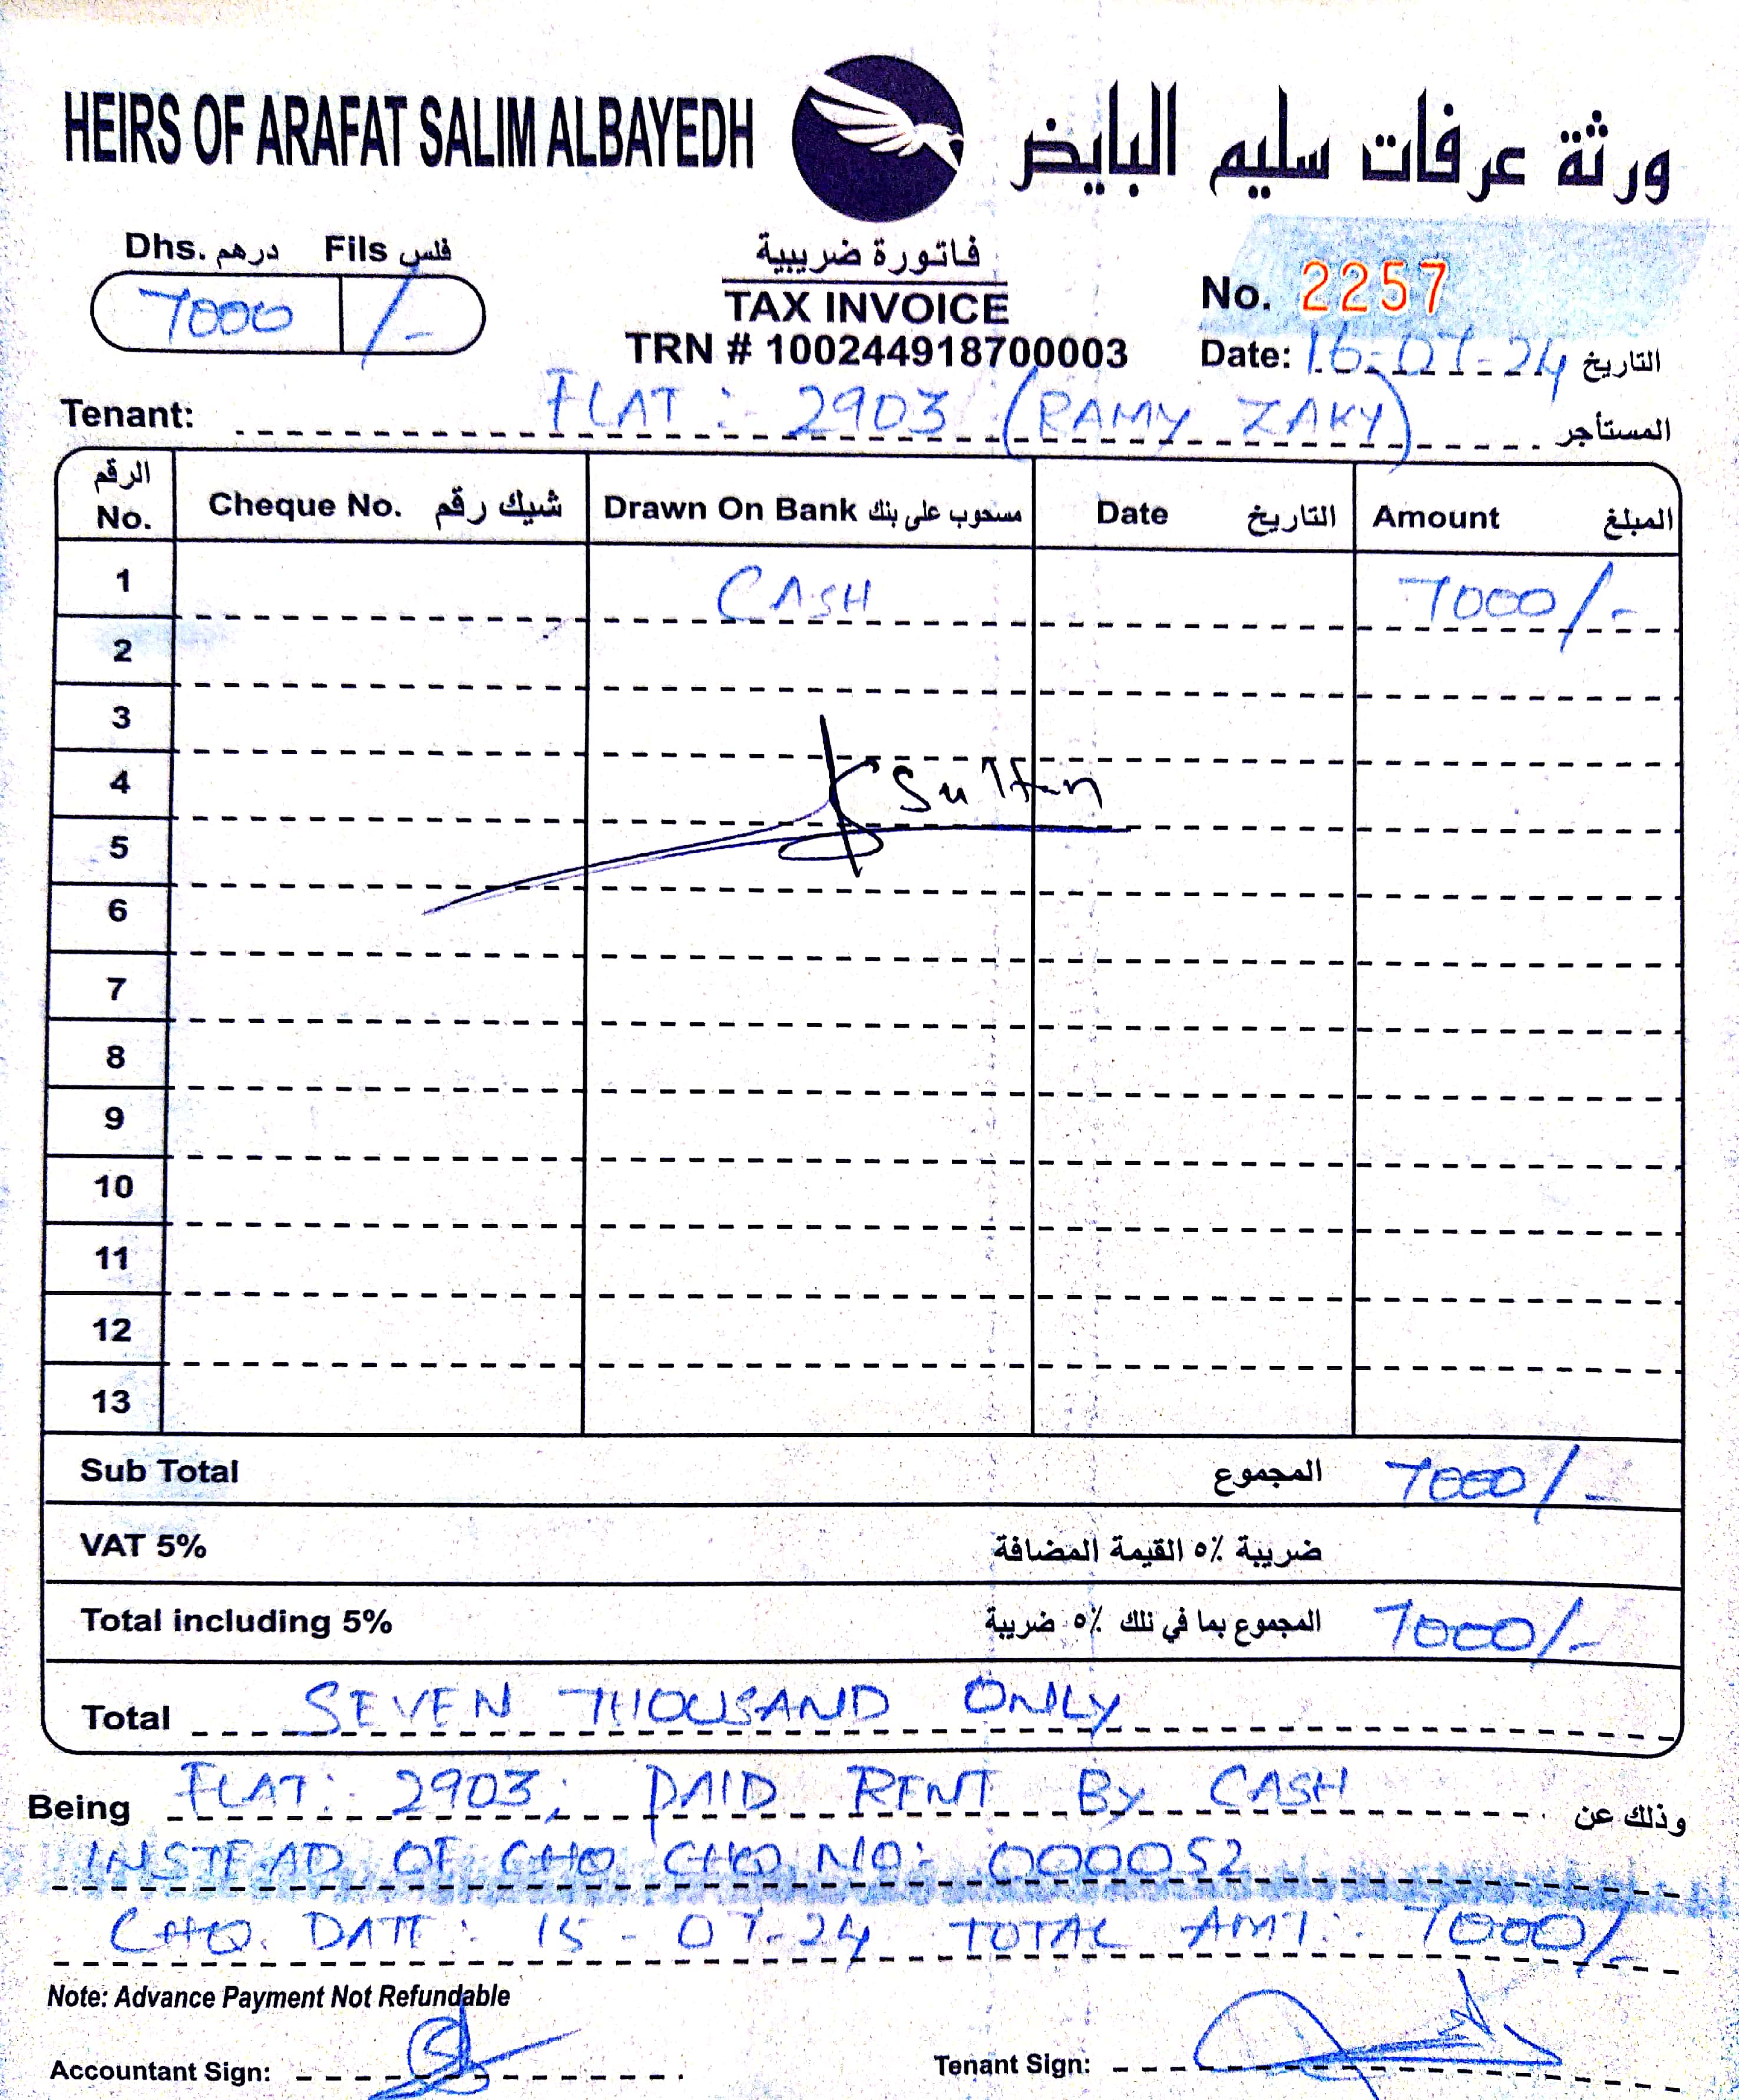 HEIRS OF ARAFAT SALIM ALBAYEDH ورثة عرفات سليم البايض
Dhs. درهم Fils فلس
7000 /-
فاتورة ضريبية
TAX INVOICE
TRN # 100244918700003
No. 2257
Date: 16-07-24 التاريخ
Tenant: FLAT : 2903 (RAMY ZAKY) المستأجر
الرقم No. Cheque No. شيك رقم Drawn On Bank مسحوب على بنك Date التاريخ Amount المبلغ
1 CASH 7000/-
2
3
4 Sultan
5
6
7
8
9
10
11
12
13
Sub Total المجموع 7000/-
VAT 5% ضريبة ٥٪ القيمة المضافة
Total including 5% المجموع بما في تلك ٥٪ ضريبة 7000/-
Total SEVEN THOUSAND ONLY
Being FLAT: 2903; PAID RENT By CASH وذلك عن
INSTEAD OF CHQ CHQ NO: 000052
CHQ. DATE : 15 - 07-24 TOTAL AMT: 7000/-
Note: Advance Payment Not Refundable
Accountant Sign: Tenant Sign: